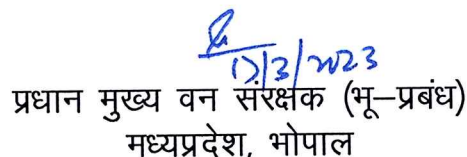 17/3/2023
प्रधान मुख्य वन संरक्षक (भू–प्रबंध)
मध्यप्रदेश, भोपाल